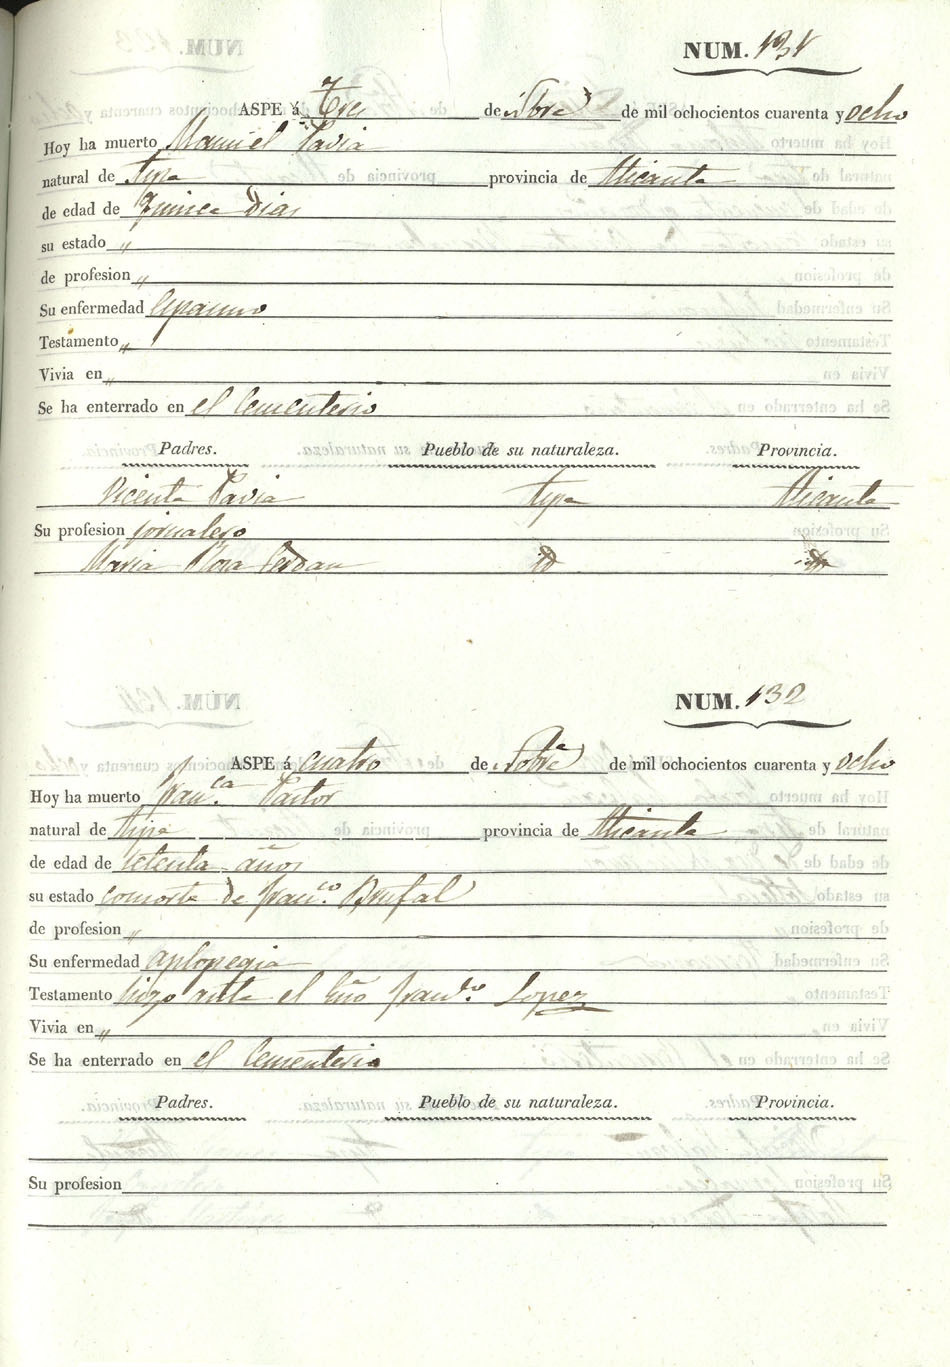 NUM. 131
ASPE á Tres de 9bre de mil ochocientos cuarenta y ocho
Hoy ha muerto Manuel Pavia
natural de Aspe provincia de Alicante
de edad de Quince Dias
su estado "
de profesion "
Su enfermedad Espasmo
Testamento "
Vivia en "
Se ha enterrado en el Cementerio
Padres. Pueblo de su naturaleza. Provincia.
Vicente Pavia Aspe Alicante
Su profesion jornalero
Maria Rosa Cerdan id id
NUM. 132
ASPE á cuatro de 9bre de mil ochocientos cuarenta y ocho
Hoy ha muerto Fran.ca Pastor
natural de Aspe provincia de Alicante
de edad de setenta años
su estado consorte de Fran.co Brufal
de profesion "
Su enfermedad aplopegia
Testamento hizo ante el Esño Lopez
Vivia en "
Se ha enterrado en el Cementerio
Padres. Pueblo de su naturaleza. Provincia.
Su profesion